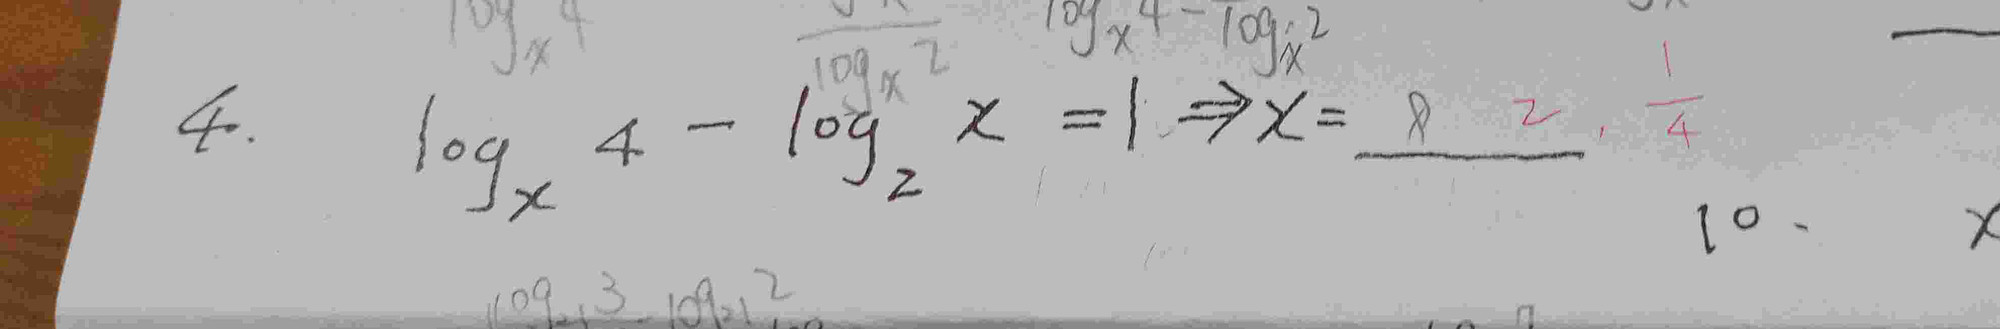 log_x 4 log_x 2 log_x 4 - log_x 2
4. log_x 4 - log_2 x = 1 ⇒ x = 8 2, 1/4
10. x
log 3 log 2